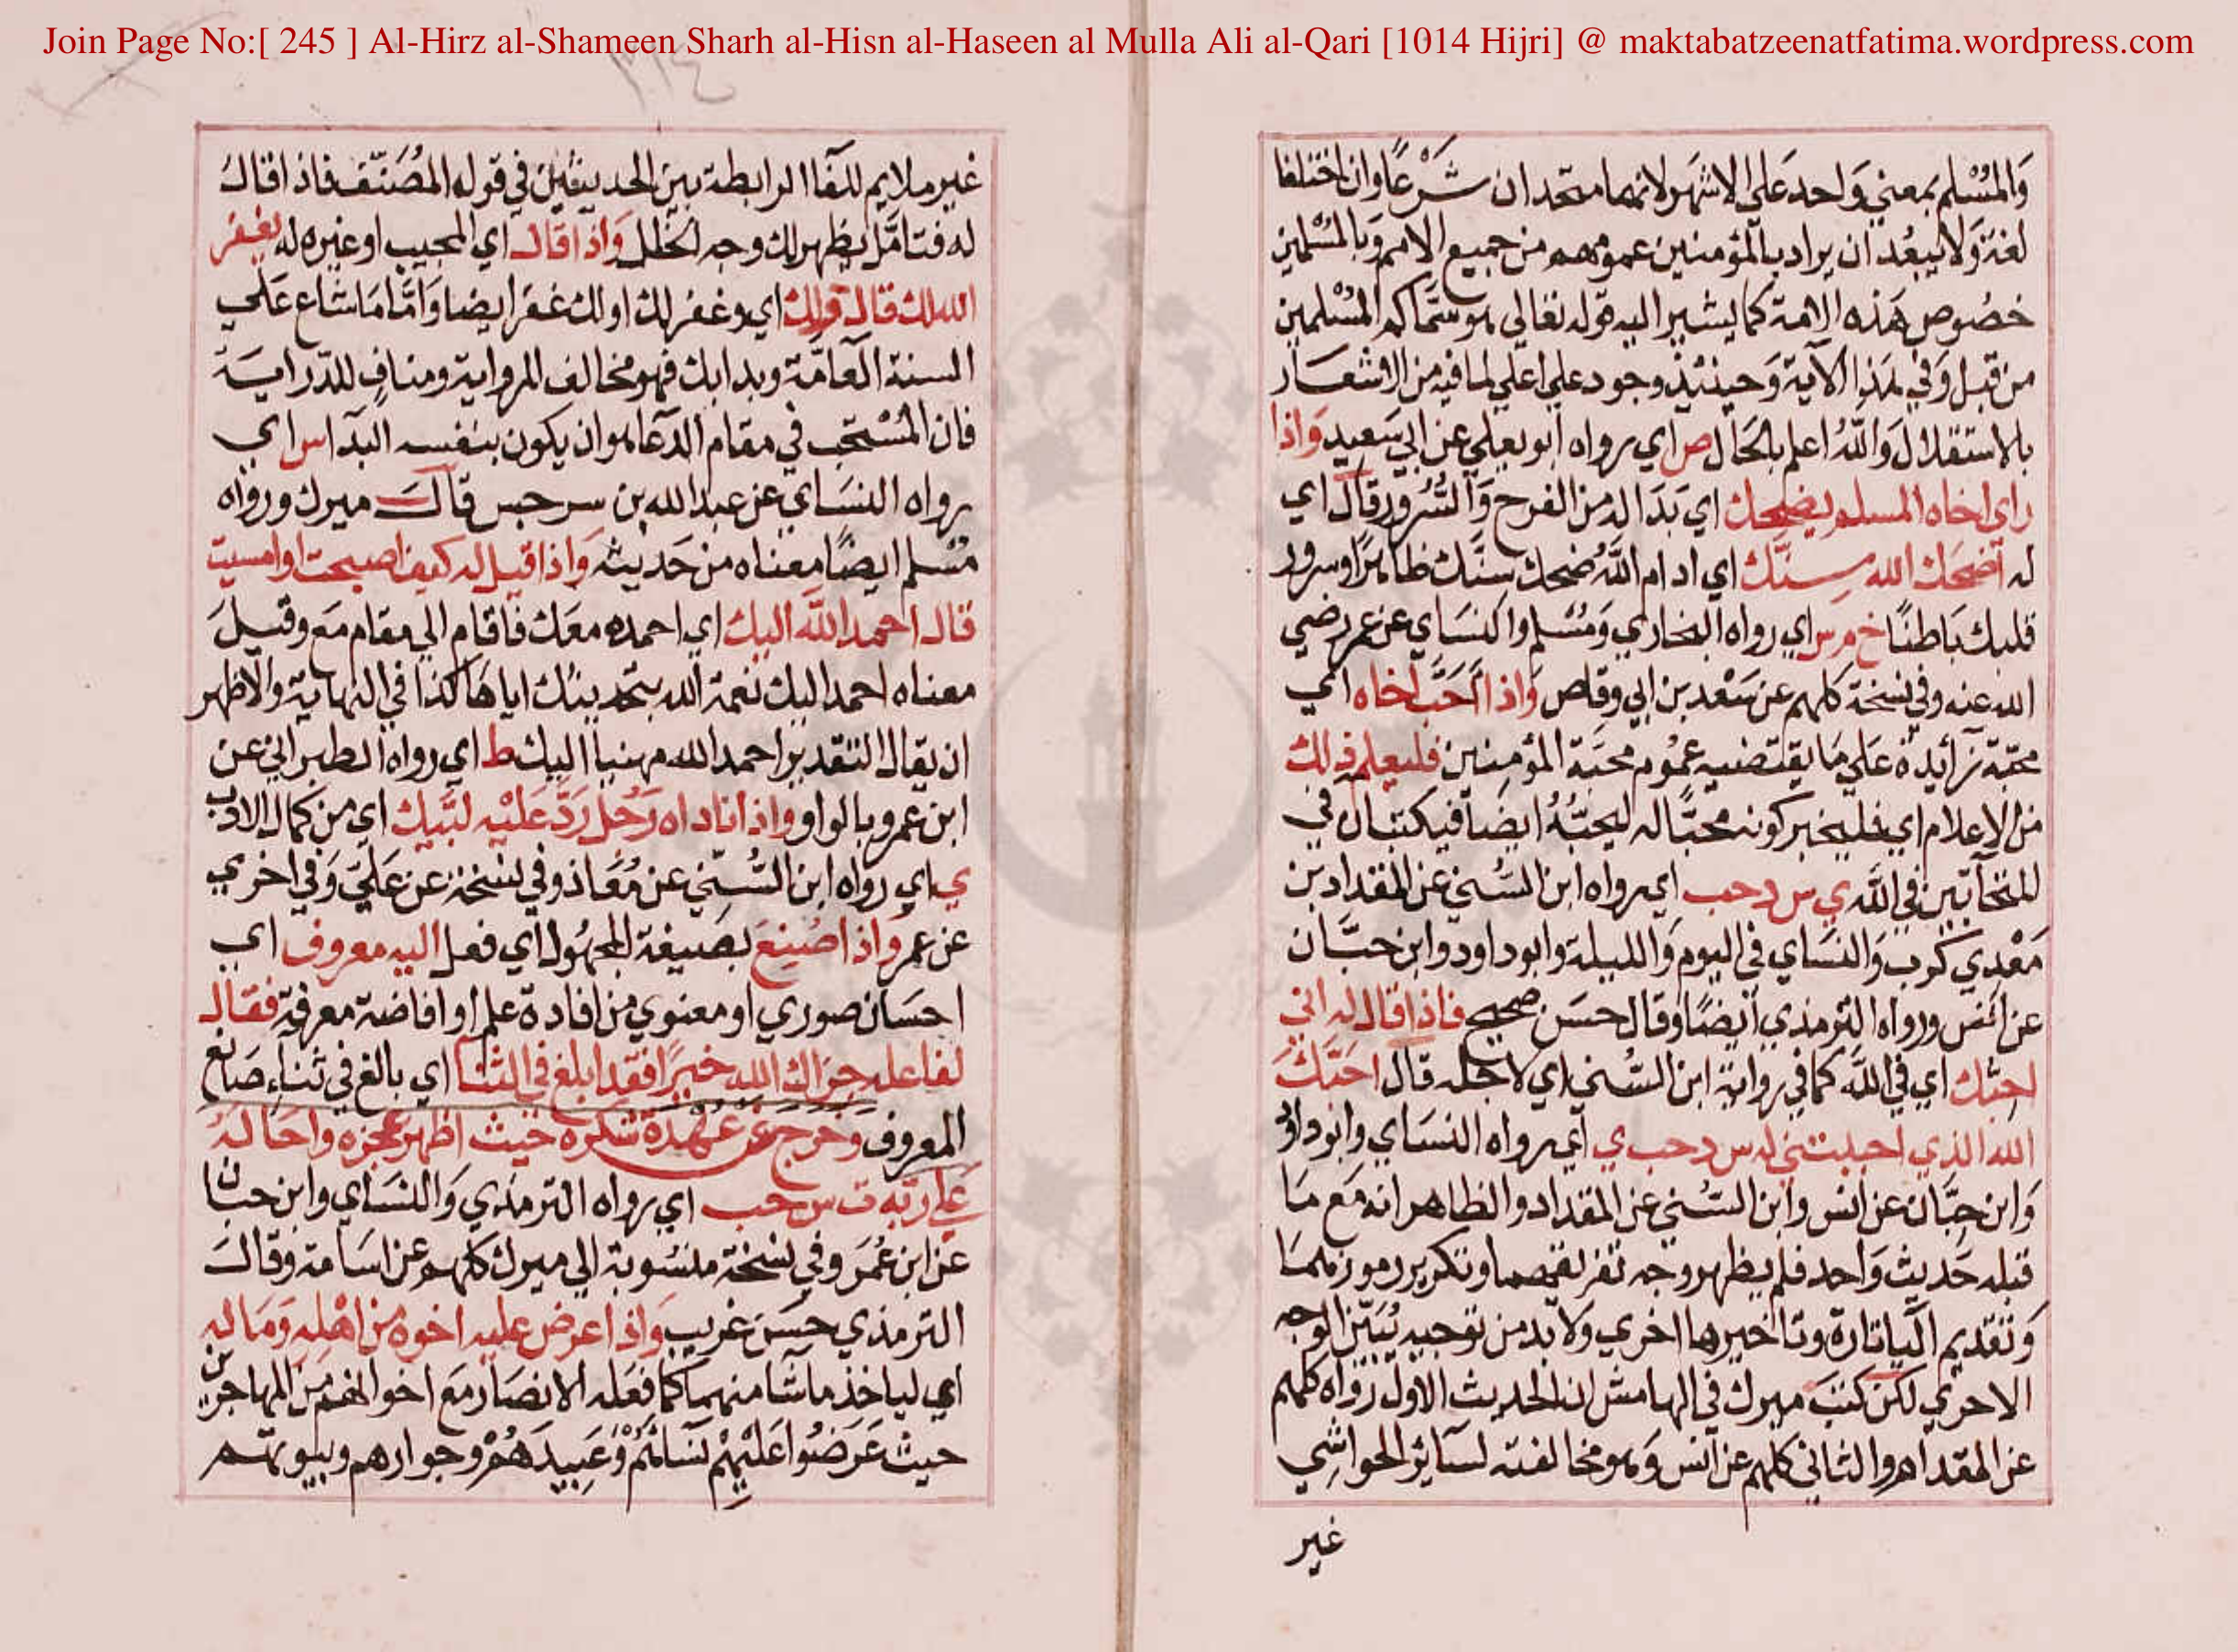 Join Page No:[ 245 ] Al-Hirz al-Shameen Sharh al-Hisn al-Haseen al Mulla Ali al-Qari [1014 Hijri] @ maktabatzeenatfatima.wordpress.com
وَالمُسْلم بمعني وَاحد عَلي الاشهَر لانهما متحدان شَرْعًا وان اختلفا
لغة وَلا يبعُد ان يراد بالمؤمنين عمومهم من جميع الامم وَبالمسْلمين
خصُوص هَذه الامة كما يشير اليه قوله تعالي هو سمَّاكم المسْلمين
من قبل وَفي هَذا الآية وَحينئذ وجود علي اعلي لما فيه من الاشعَار
بالاستقلال وَاللَّهُ اعلم بالحَال ص اي رواه ابو يعلي عن ابي سَعيد وَاذا
راي اخاه المسلم يضحك اي بَدَا له من الفرح وَالسُّرور قال اي
له اضحَك الله سِنَّك اي ادام اللَّهُ ضحك سنَّك ظاهرًا وسرور
قلبك بَاطنًا خ م س اي رواه البخاري وَمُسْلم والنسَاي عن عمر رضي
الله عنه وفي نسخة كلهم عن سَعْد بن ابي وقاص وَاذا احَبَّ اخاه اي
محبّة زائدة عَلي مَا يقتضيه عمُوم محبَة المؤمنين فليعلمه ذلك
من الاعلام اي فليخبر كونه محبًّا له ليحبَّهُ ايضا فيكتبان في
المتحآبّين في اللَّه ي س د حب اي رواه ابن السُّني عن المقداد بن
مَعْدِي كرب وَالنسَاي في اليوم وَالليلة وابو داود وابن حبَّان
عن انَس ورواه الترمذي ايضًا وقال حسَن صحيح فاذا قال له اني
احبّك اي في اللَّه كما في رواية ابن السُّني اي لاجله قال احَبّكَ
الله الذي احببتني له س د حب ي اي رواه النسَاي وابو داود
وَابن حِبَّان عن انس وابن السُّني عن المقداد والظاهر انه مَع مَا
قبله حَديث وَاحد فلم يظهر وجه تفريقهما وتكرير رموزهما
وَتقديم اليا تارة وتاخيرها اخري وَلا بد من توجيه يُبَيّن الوجه
الاحري لكن كتبَ ميرك في الهامش ان الحديث الاول رَوَاه كلهم
عن المقداد والثاني كلهم عن انس وَهو مخالفته لسَآير الحواشِي
غير
٣١٤
غير ملايم للفا الرابطة بين الحديثين في قوله المُصَنّف فاذا قال
له فتامَّل يظهر لك وجه الخلل وَاذا قال اي المجيب او غيره له يغفر
الله لك قال ولك اي وغفر لك او لك غفرَ ايضا وَامَّا مَا شاع عَلي
السنة العَامَّة وبدا بك فهو مخالف للرواية ومنافٍ للدّرايَة
فان المسْتحب في مقام الدّعا هو ان يكون بنفسه البدآ س اي
رواه النسَاي عن عبد الله بن سرجس قالَ ميرك ورواه
مُسْلم ايضًا معناه من حَديثه وَاذا قيل له كيف اصبحت او امسيت
قال احمد اللَّه اليك اي احمده معَك فاقام الي مقام مَع وقيلَ
معناه احمد اليك نعمة الله بتحديثك اياها كذا في النهاية والاظهر
ان يقال التقدير احمد الله منهيا اليك ط اي رواه الطبراني عن
ابن عمرو بالواو واذا ناداه رَجُل رَدَّ عَلَيْه لبَّيك اي من كمال الادب
ي اي رواه ابن السُّنِّي عن مُعَاذ وفي نسخة عن عَلي وَفي اخري
عن عمر وَاذا صُنِعَ بصَيغة المجهُول اي فعل اليه معروف اي
احسَان صوري او معنوي من افادة علم او افاضة معرفة فقال
لفاعله جزاك الله خيرًا فقد ابلغ في الثنا اي بالغ في ثناء صَانع
المعروف وخرج عن عُهْدَة شكره حيث اظهر عجزه واحَالهُ
عَلي ربّه ت س حب اي رواه الترمذي وَالنسَاي وابن حبان
عن ابن عُمَر وفي نسخة منسُوبة الي ميرك كلهم عن اسَامة وقالَ
الترمذي حسَن غريب وَاذا عرض عليه اخوه من اهْلِه وَمَاله
اي لياخذ ما شآ منهما كما فعَله الانصَار مَع اخوانهم من المهاجرين
حيث عَرَضُوا عَلَيْهِمْ نسَآئَهُمْ وَعَبِيدَهُمْ وجوارهم وبيوتهم